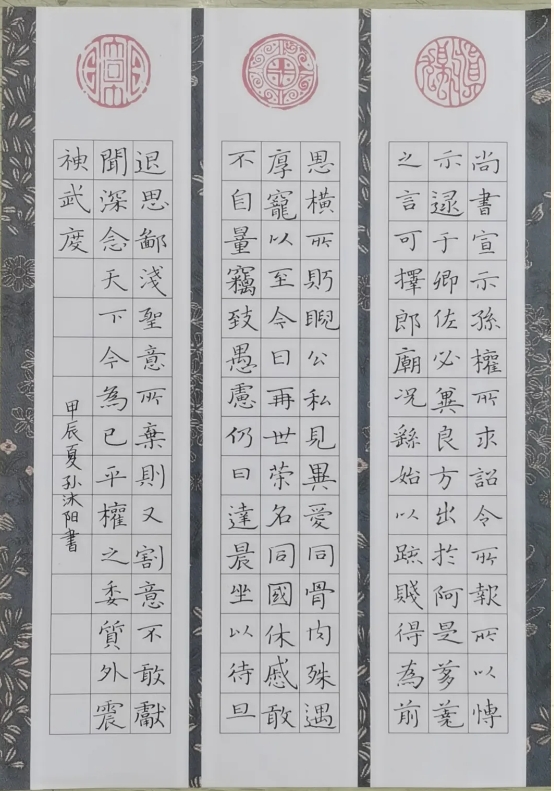 尚書宣示孫權所求詔令所報所以慱
示逯于卿佐必兾良方出於阿是芻蕘
之言可擇郎廟况繇始以疏賤得為前
恩橫所睨公私見異愛同骨肉殊遇
厚寵以至今日再世榮名同國休慼敢
不自量竊致愚慮仍日達晨坐以待旦
退思鄙淺聖意所棄則又割意不敢獻
聞深念天下今為已平權之委質外震
神武度
甲辰夏孙沐阳書